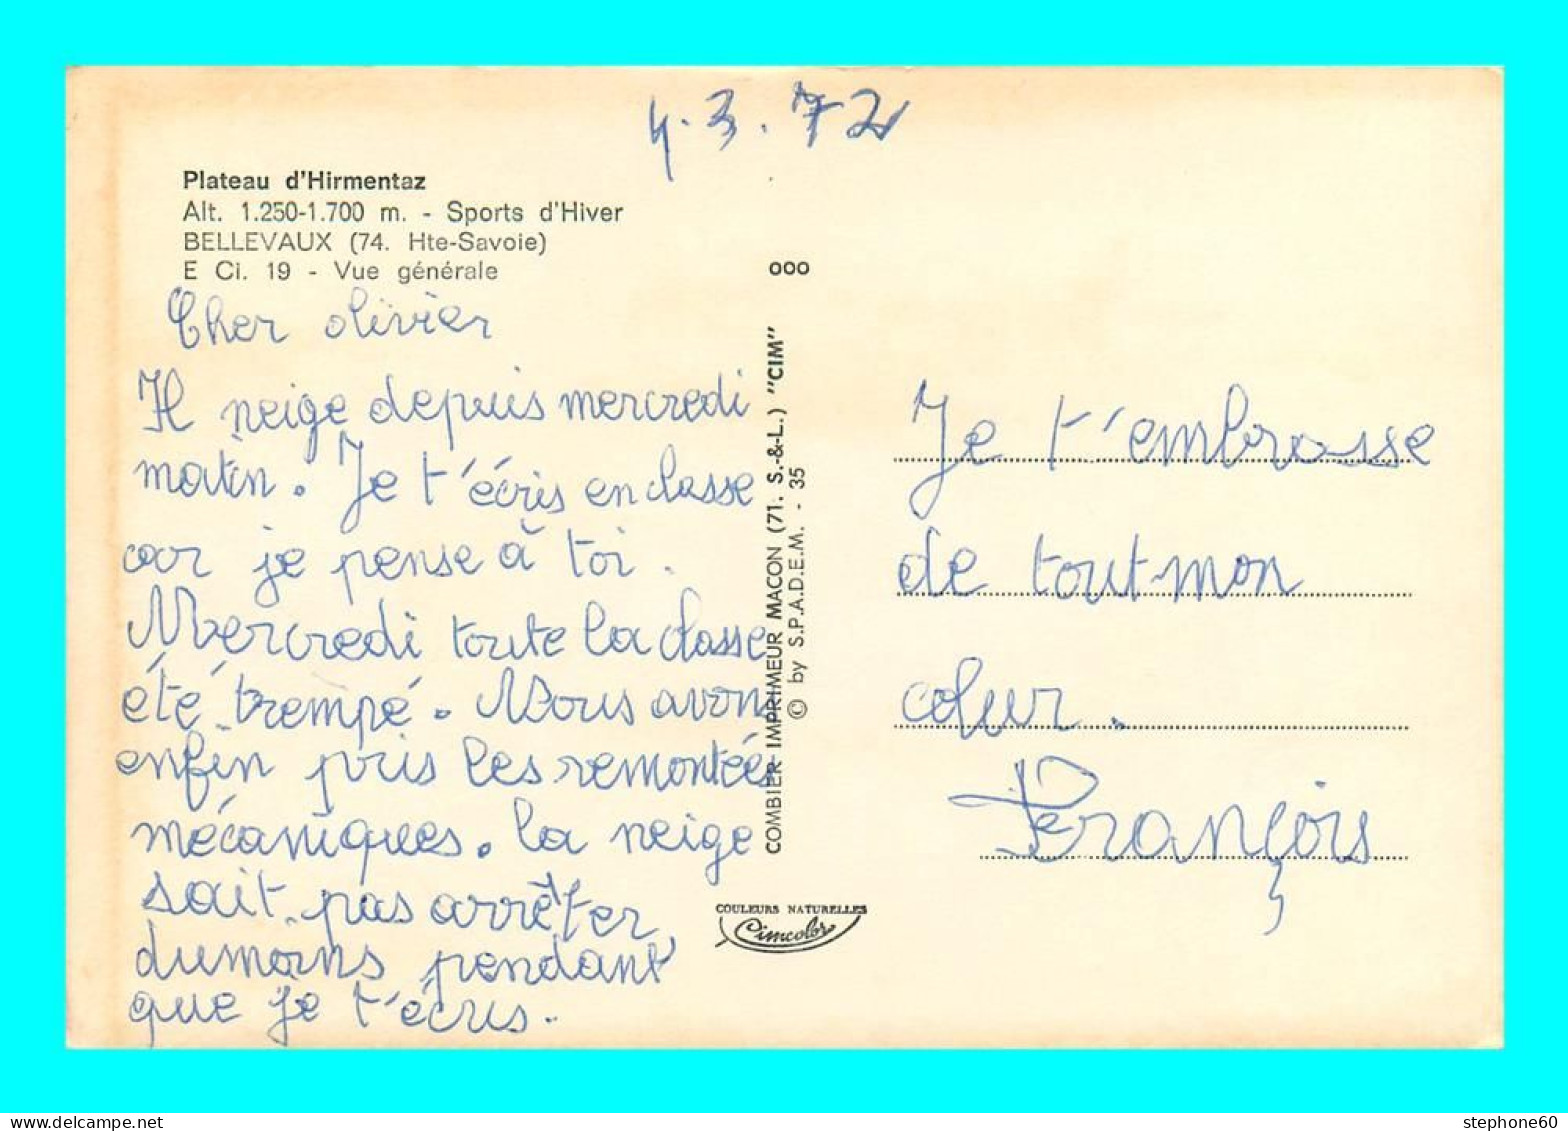 4.3.72
Plateau d'Hirmentaz
Alt. 1.250-1.700 m. - Sports d'Hiver
BELLEVAUX (74. Hte-Savoie)
E Ci. 19 - Vue générale
Cher olivier
Il neige depuis mercredi
matin. Je t'écris en classe
car je pense à toi.
Mercredi toute la classe
été trempé. Nous avons
enfin pris les remontées
mécaniques. la neige
sait pas arrêter
dumoins pendant
que je t'écris.
000
COMBIER IMPRIMEUR MACON (71. S.-&-L.) "CIM"
© by S.P.A.D.E.M. - 35
COULEURS NATURELLES
Cimcolor
Je t'embrasse
de tout mon
coeur.
François
stephone60